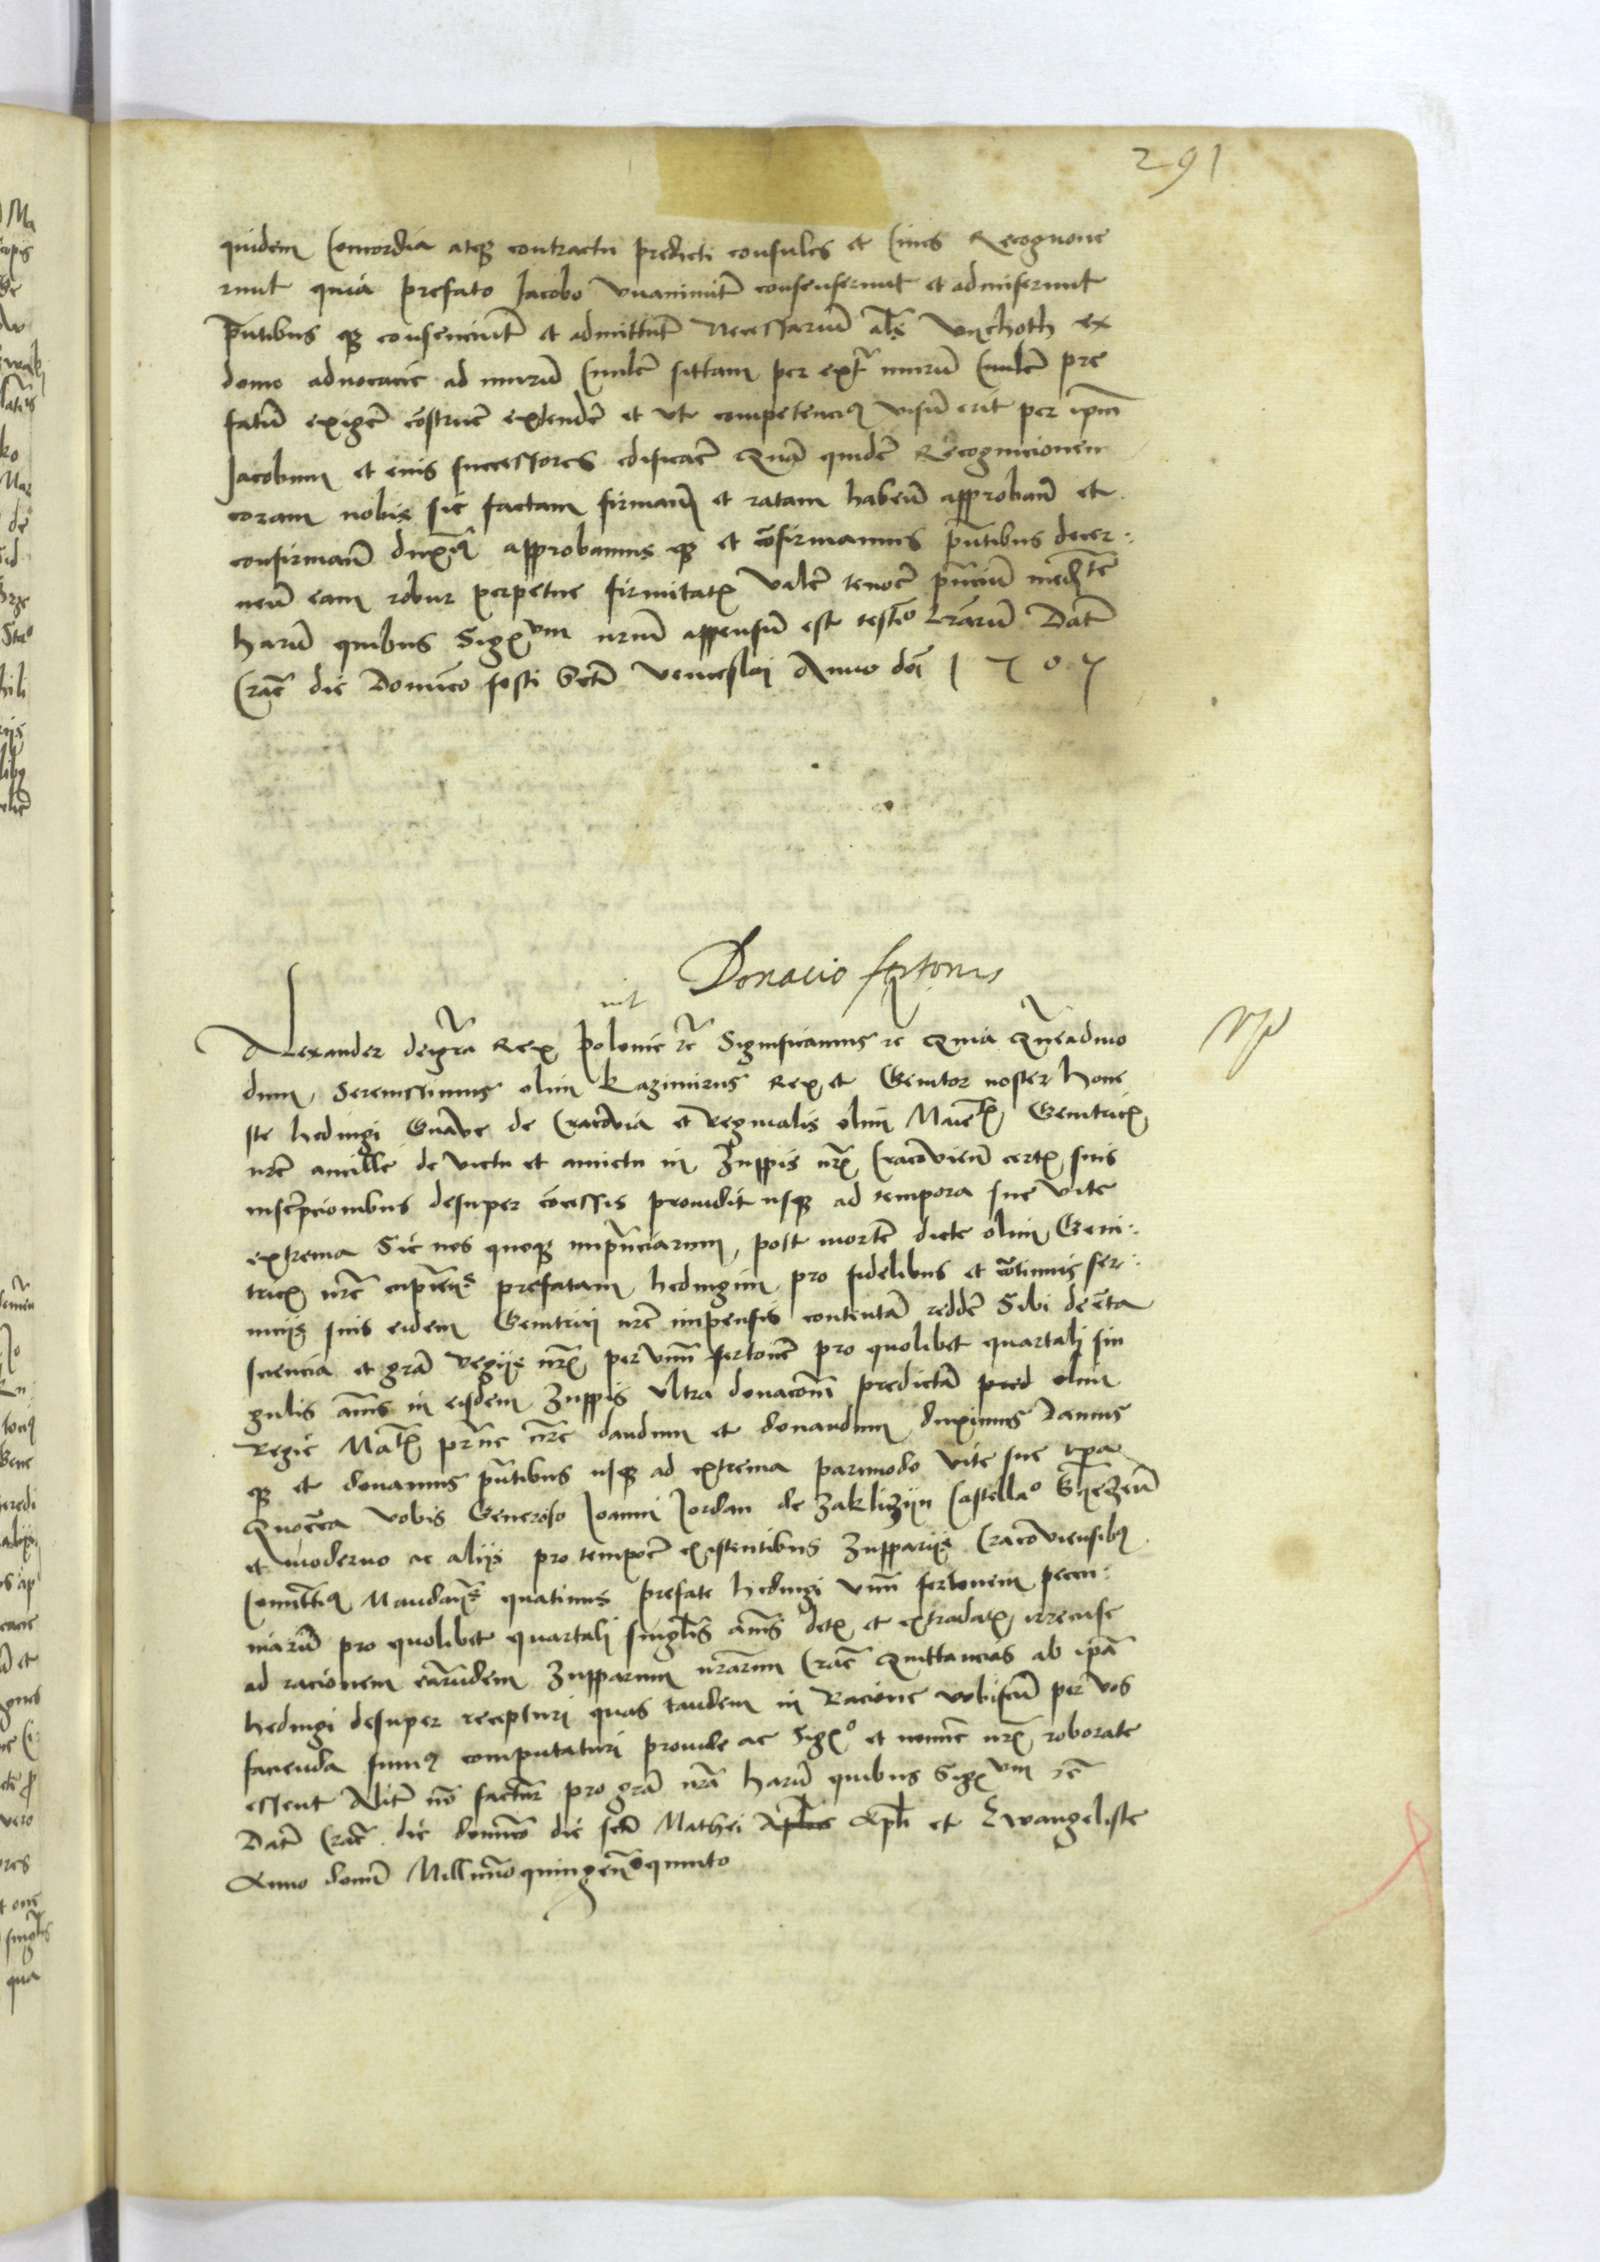 291
quidem Concordia atque contractu predicti consules et Cives Recognove
runt quia prefato Jacobo unanimiter consenserunt et admiserunt
pntibus que consenciunt et admittunt Necessarium als Vychoth ex
domo advocacie ad murum Civilem sittam per ext murum Civilem pre
fatum exigere construere extendere et ut competencius visum erit per ipm
Jacobum et eius successores edificare Quam quidem Recognicionem
coram nobis sic factam firmam et ratam habentes approband et
confirmand duximus approbamus que et confirmamus pntibus decer:
nentes eam robur perpetue firmitatis valere tenore pncium mediante
harum quibus Sigillum nrum appensum est testio lrarum Dat
Crac die Dominico festi Scti Venceslai Anno dni 1505
Donacio fertonis
Alexander dei gra Rex Polonie etc Significamus etc Quia Quemadmo
dum Serenissimus olim Kazimirus Rex et Genitor noster hone
ste hedvigi de Cracovia et Reginalis olim Maiestatis Genitricis
nre ancille de victu et amictu in Zuppis nris Cracovien certis suis
inscripcionibus desuper concessis providit usque ad tempora sue vite
extrema Sic nos quoque post mortem dicte olim Geni:
tricis nre cupientes prefatam hedvigim pro fidelibus et continuis ser:
viciis suis eidem Genitrici nre impensis contentam reddere Sibi de certa
sciencia et gra regiis nris per unum fertonem pro quolibet quartali sin
gulis annis in eisdem Zuppis ultra donacionem predictam pred olim
Regie Matis prne nre dandum et donandum duximus Damus
que et donamus pntibus usque ad extrema parimodo vite sue tpa
Quocirca vobis Generoso Joanni Jordan de Zaklizyn Castellano
et moderno ac aliis pro tempore existentibus Zuppariis Cracoviensibus
Committimus Mandantes quatinus prefate hedvigi unum fertonem pecu:
niarum pro quolibet quartali singulis annis detis et extradatis irrecuse
ad racionem earundem Zupparum nrarum Crac Quittancias ab ipsa
hedvigi desuper recepturi quas tandem in Racione vobiscum per vos
facienda sumus computaturi proinde ac Sigillo et nomine nris roborate
essent Aliter non facturi pro gra nra harum quibus Sigillum etc
Dat Crac die dominico die scti Mathei Aplos Apli et Ewangeliste
Anno domini Millimoquingenmoquinto